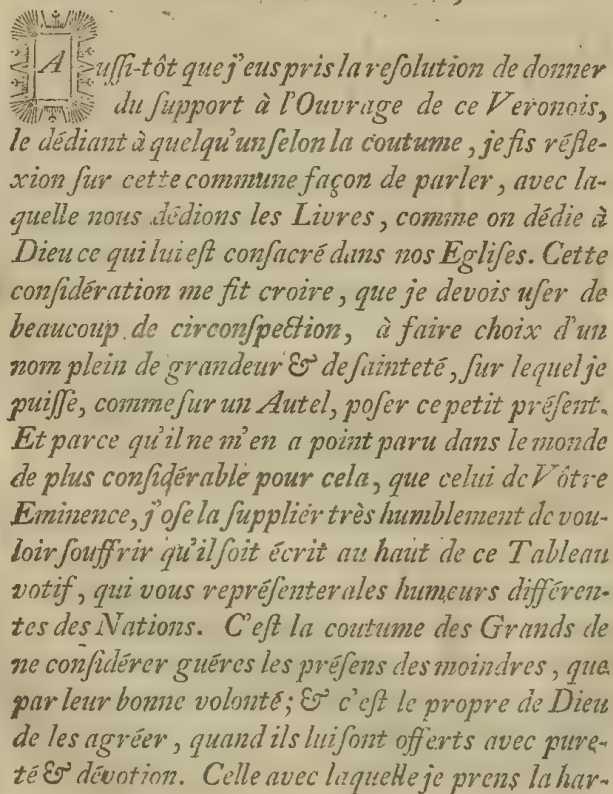 Auſſi-tôt que j'eus pris la reſolution de donner
du ſupport à l'Ouvrage de ce Veronois,
le dédiant à quelqu'un ſelon la coutume, je fis réfle-
xion ſur cette commune façon de parler, avec la-
quelle nous dédions les Livres, comme on dédie à
Dieu ce qui lui eſt conſacré dans nos Egliſes. Cette
conſidération me fit croire, que je devois uſer de
beaucoup de circonſpection, à faire choix d'un
nom plein de grandeur & de ſainteté, ſur lequel je
puiſſe, comme ſur un Autel, poſer ce petit préſent.
Et parce qu'il ne m'en a point paru dans le monde
de plus conſidérable pour cela, que celui de Vôtre
Eminence, j'oſe la ſuppliér très humblement de vou-
loir ſouffrir qu'il ſoit écrit au haut de ce Tableau
votif, qui vous repréſentera les humeurs différen-
tes des Nations. C'eſt la coutume des Grands de
ne conſidérer guéres les préſens des moindres, que
par leur bonne volonté; & c'eſt le propre de Dieu
de les agréer, quand ils lui ſont offerts avec pure-
té & dévotion. Celle avec laquelle je prens la har-